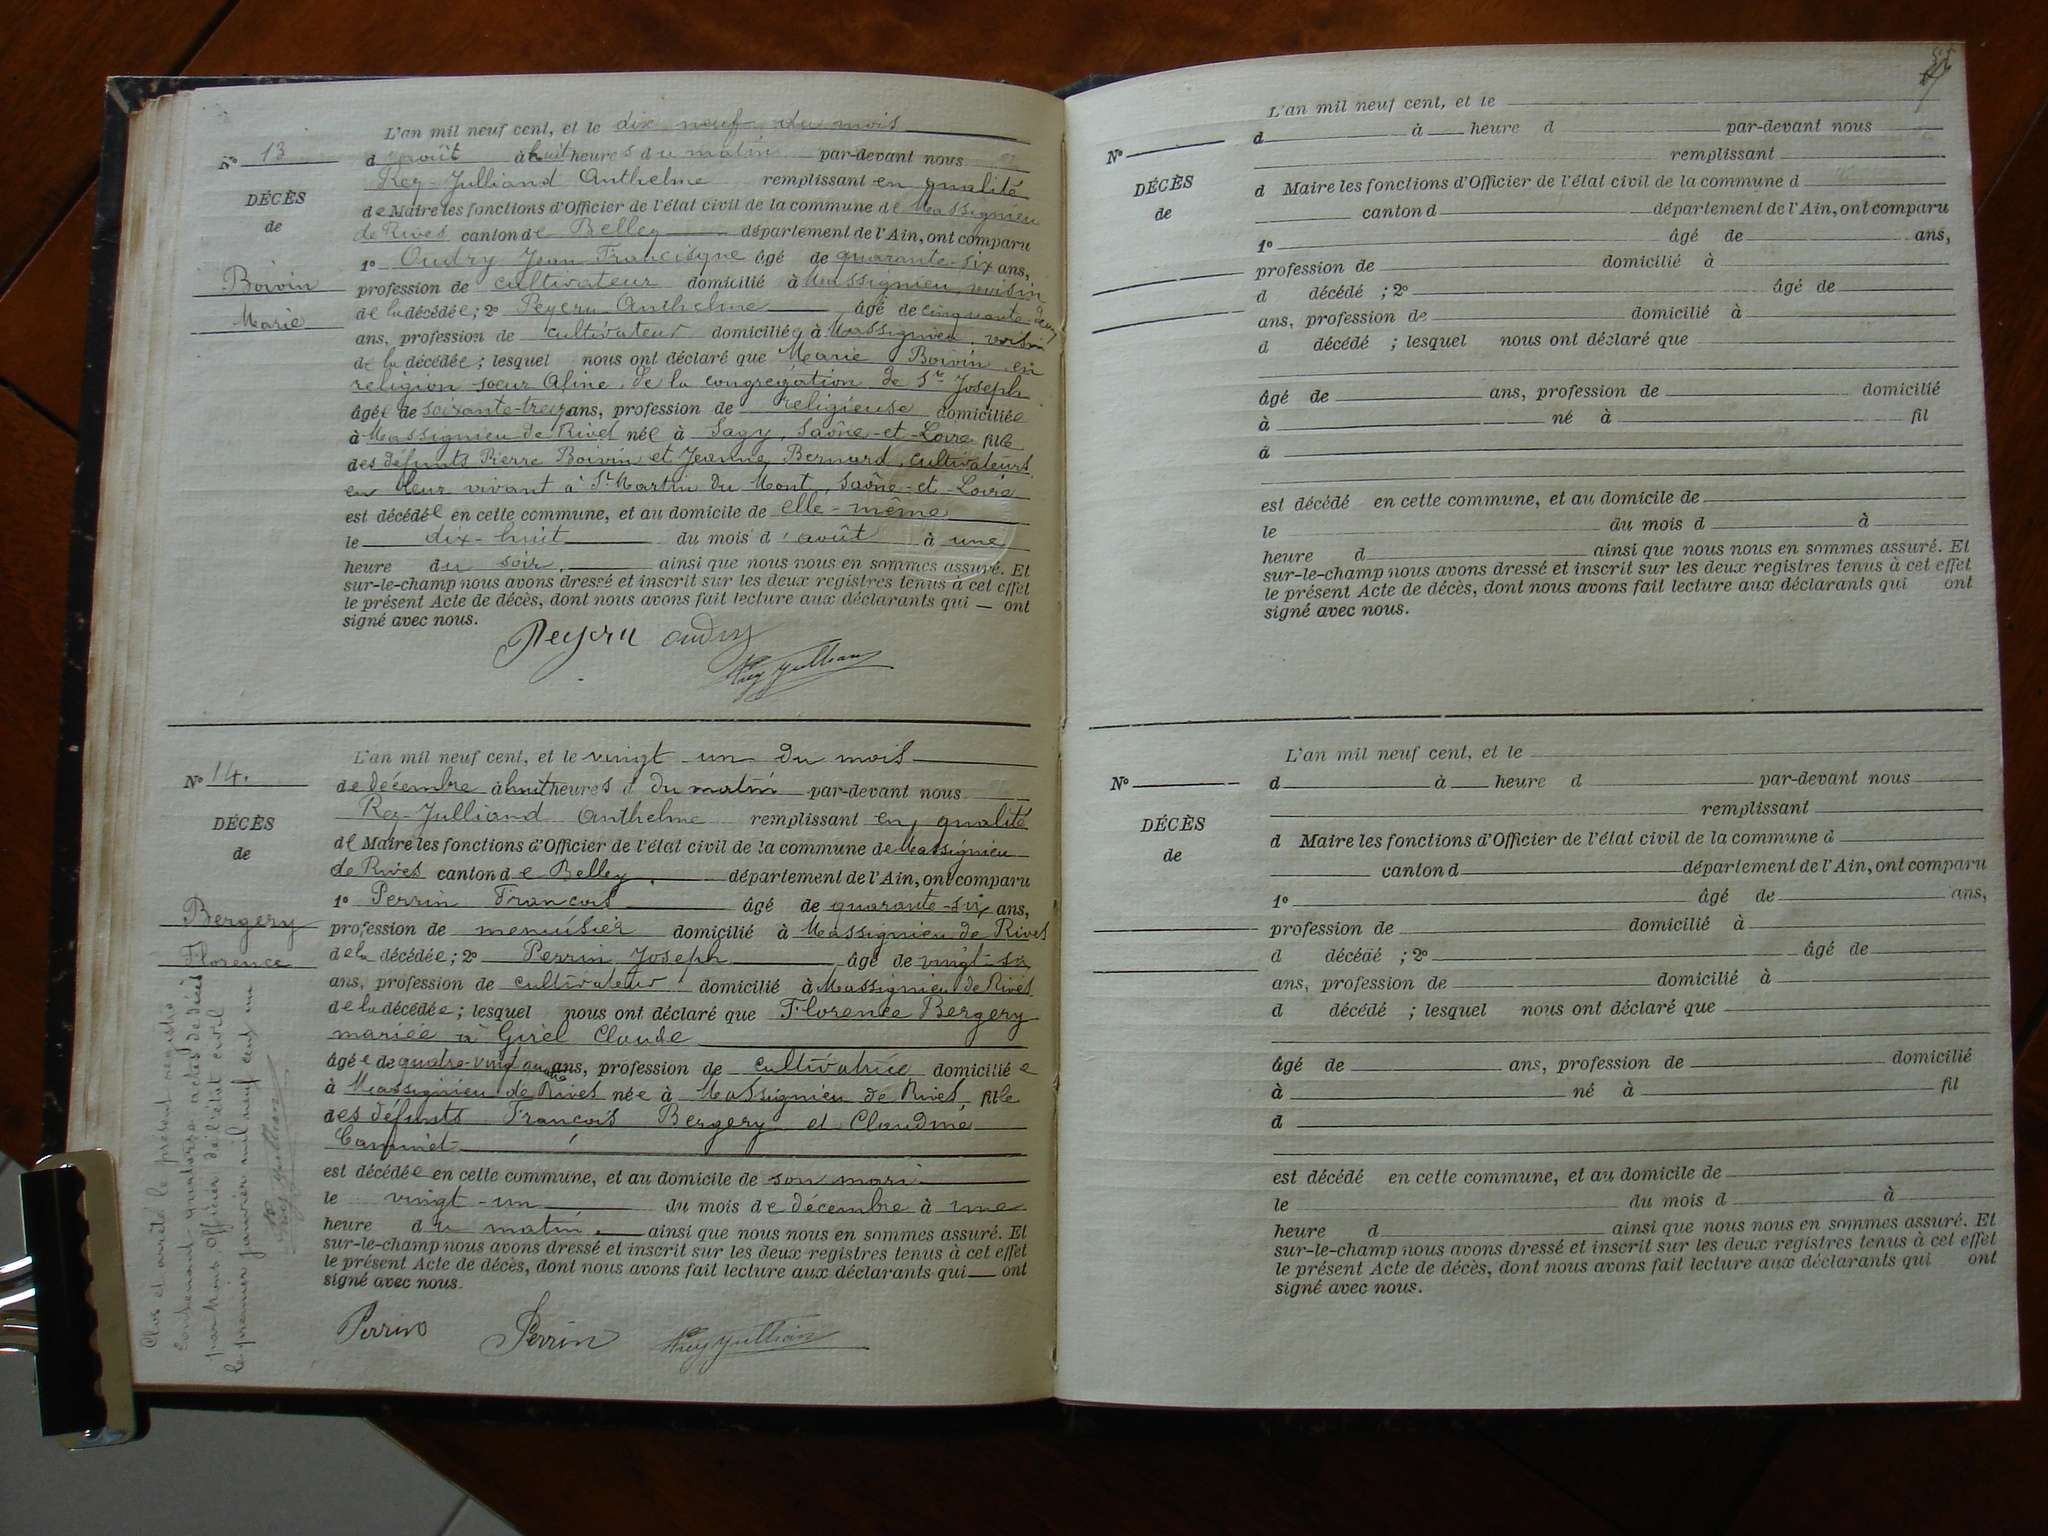 L'an mil neuf cent, et le dix neuf du mois
N° 13
d'août à huit heures du matin par-devant nous
Rey-Julliand Anthelme remplissant en qualité
DÉCÈS
de Maire les fonctions d'Officier de l'état civil de la commune de Massignieu
de
de Rives canton de Belley département de l'Ain, ont comparu
1° Oudry Jean Francisque âgé de quarante-six ans,
Boivin
profession de cultivateur domicilié à Massignieu, voisin
Marie
de la décédée; 2° Peyeru Anthelme âgé de cinquante deux
ans, profession de cultivateur domicilié à Massignieu, voisin
de la décédée; lesquel nous ont déclaré que Marie Boivin en
religion sœur Afine, de la congregation de St Joseph
âgée de soixante-treize ans, profession de religieuse domiciliée
à Massignieu de Rives née à Sagy, Saône-et-Loire fille
des défunts Pierre Boivin et Jeanne Bernard, cultivateurs
en leur vivant à St Martin du Mont, Saône-et-Loire
est décédée en cette commune, et au domicile de elle-même
le dix-huit du mois d'août à une
heure du soir, ainsi que nous nous en sommes assuré. Et
sur-le-champ nous avons dressé et inscrit sur les deux registres tenus à cet effet
le présent Acte de décès, dont nous avons fait lecture aux déclarants qui — ont
signé avec nous.
Peyeru Oudry
Rey Julliand
L'an mil neuf cent, et le vingt-un du mois
N° 14.
de décembre à huit heures d du matin par-devant nous
Rey-Julliand Anthelme remplissant en qualité
DÉCÈS
de Maire les fonctions d'Officier de l'état civil de la commune de Massignieu
de
de Rives canton de Belley. département de l'Ain, ont comparu
1° Perrin François âgé de quarante-six ans,
Bergery
profession de menuisier domicilié à Massignieu de Rives
Florence
de la décédée; 2° Perrin Joseph âgé de vingt-six
ans, profession de cultivateur domicilié à Massignieu de Rives
de la décédée; lesquel nous ont déclaré que Florence Bergery
mariée à Girel Claude
âgée de quatre-vingt quatre ans, profession de cultivatrice domiciliée
à Massignieu de Rives née à Massignieu de Rives, fille
des défunts François Bergery et Claudine
est décédée en cette commune, et au domicile de son mari
le vingt-un du mois de décembre à une
heure du matin, ainsi que nous nous en sommes assuré. Et
sur-le-champ nous avons dressé et inscrit sur les deux registres tenus à cet effet
le présent Acte de décès, dont nous avons fait lecture aux déclarants qui — ont
signé avec nous.
Perrin Perrin Rey Julliand
Clos et arrêté le présent registre
contenant quatorze actes de décès
par Nous Officier de l'état civil
le premier janvier mil neuf cent un
Rey Julliand
L'an mil neuf cent, et le
N°
d à heure d par-devant nous
remplissant
DÉCÈS
d Maire les fonctions d'Officier de l'état civil de la commune d
de
canton d département de l'Ain, ont comparu
1° âgé de ans,
profession de domicilié à
d décédé ; 2° âgé de
ans, profession de domicilié à
d décédé ; lesquel nous ont déclaré que
âgé de ans, profession de domicilié
à né à fil
d
est décédé en cette commune, et au domicile de
le du mois d à
heure d ainsi que nous nous en sommes assuré. Et
sur-le-champ nous avons dressé et inscrit sur les deux registres tenus à cet effet
le présent Acte de décès, dont nous avons fait lecture aux déclarants qui ont
signé avec nous.
L'an mil neuf cent, et le
N°
d à heure d par-devant nous
remplissant
DÉCÈS
d Maire les fonctions d'Officier de l'état civil de la commune d
de
canton d département de l'Ain, ont comparu
1° âgé de ans,
profession de domicilié à
d décédé ; 2° âgé de
ans, profession de domicilié à
d décédé ; lesquel nous ont déclaré que
âgé de ans, profession de domicilié
à né à fil
d
est décédé en cette commune, et au domicile de
le du mois d à
heure d ainsi que nous nous en sommes assuré. Et
sur-le-champ nous avons dressé et inscrit sur les deux registres tenus à cet effet
le présent Acte de décès, dont nous avons fait lecture aux déclarants qui ont
signé avec nous.